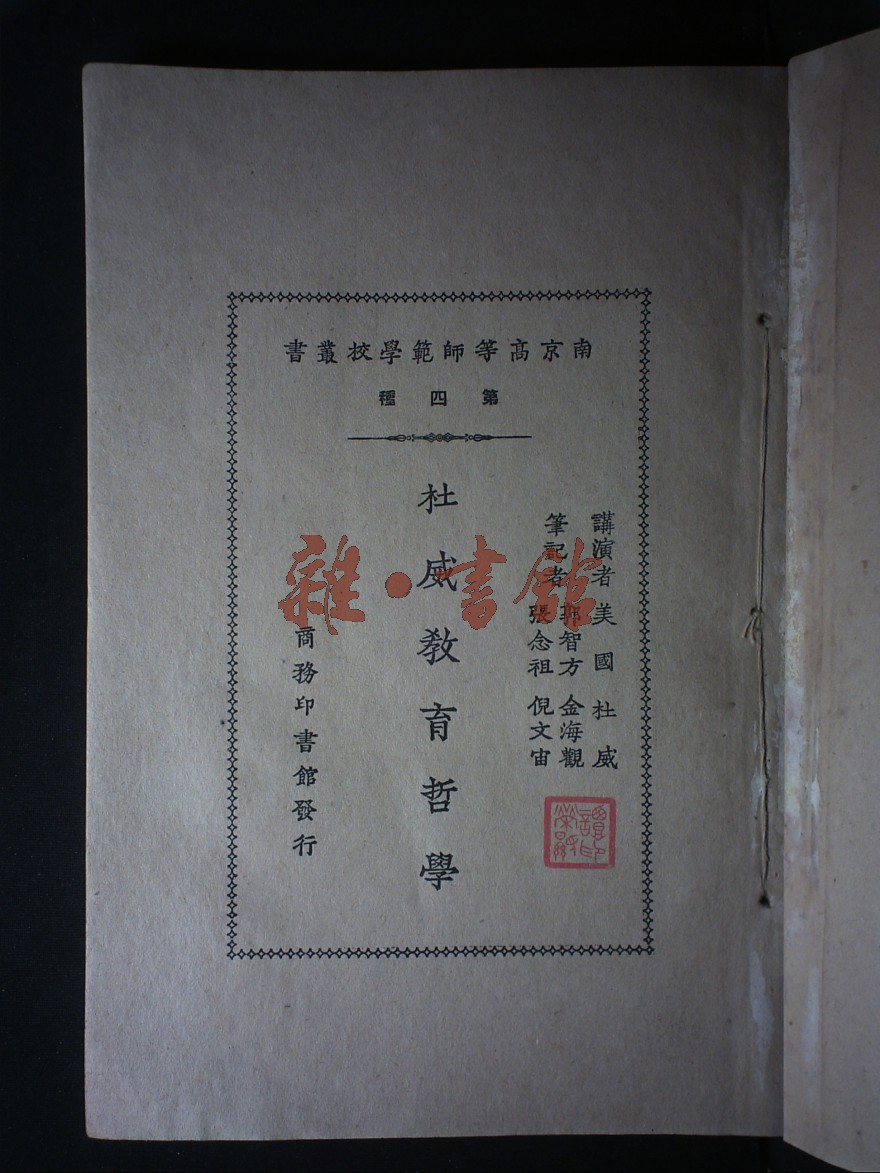 南京高等師範學校叢書
第四種
講演者 美國杜威
筆記者 郭智方 金海觀
張念祖 倪文宙
杜威教育哲學
商務印書館發行
雜·書館